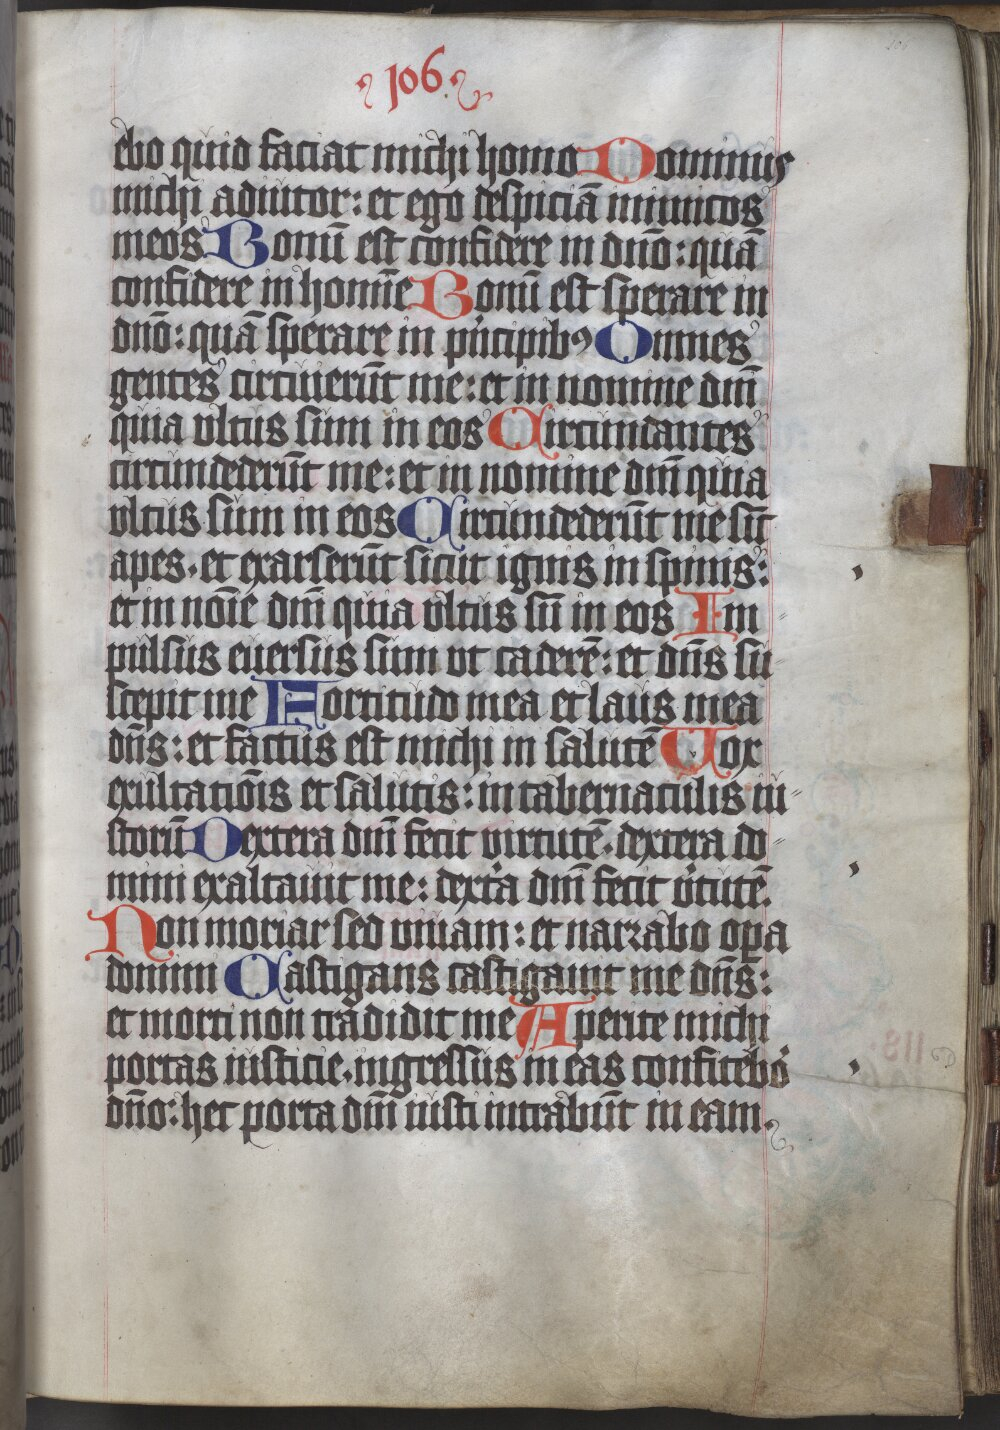 106
ebo quid faciat michi homo Dominus
michi adiutor: et ego despiciā inimicos
meos Bonū est confidere in dn̄o: quā
confidere in homīe Bonū est sperare in
dn̄o: quā sperare in pͥncipibꝰ Omnes
gentes circuierūt me: et in nomine dn̄i
quia vltus sum in eos Circumdantes
circumdederūt me: et in nomine dn̄i quia
vltus sum in eos Circumdederūt me sic̄
apes, et exarserūt sicut ignis in spinis:
et in noīe dn̄i quia vltus sū in eos Im
pulsus euersus sum vt caderē: et dn̄s su
scepit me Fortitudo mea et laus mea
dn̄s: et factus est michi in salutē Vox
exultatiōis et salutis: in tabernaculis iu
storū Dextera dn̄i fecit virtutē, dextera do
mini exaltauit me: dext̾a dn̄i fecit vͥtutē.
Non moriar sed viuam: et narrabo oꝑa
domini Castigans castigauit me dn̄s:
et morti non tradidit me Aperite michi
portas iusticie, ingressus in eas confitebo
dn̄o: hec porta dn̄i iusti intrabūt in eam.